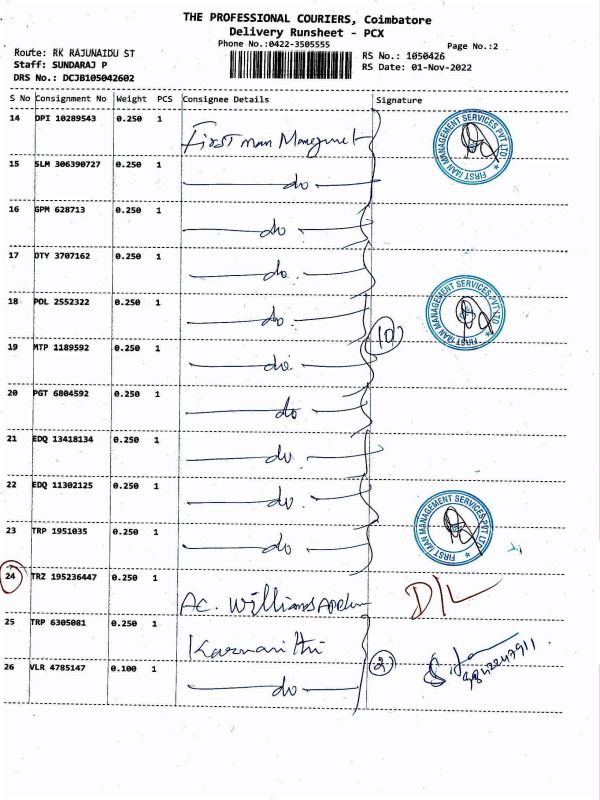 THE PROFESSIONAL COURIERS, Coimbatore
Delivery Runsheet - PCX
Phone No.:0422-3505555
Page No.:2
Route: RK RAJUNAIDU ST
RS No.: 1050426
Staff: SUNDARAJ P
RS Date: 01-Nov-2022
DRS No.: DCJB105042602
S No Consignment No Weight PCS Consignee Details Signature
14 DPI 10289543 0.250 1 First man
FIRST MAN MANAGEMENT SERVICES PVT LTD
15 SLM 306390727 0.250 1 do
16 GPM 628713 0.250 1 do
17 OTY 3707162 0.250 1 do
18 POL 2552322 0.250 1 do
FIRST MAN MANAGEMENT SERVICES PVT LTD
10
19 MTP 1189592 0.250 1 do
20 PGT 6804592 0.250 1 do
21 EDQ 13418134 0.250 1 do
22 EDQ 11302125 0.250 1 do
FIRST MAN MANAGEMENT SERVICES PVT LTD
23 TRP 1951035 0.250 1 do
24 TRZ 195236447 0.250 1 AC. Williams D/L
25 TRP 6305081 0.250 1
26 VLR 4785147 0.100 1 do 2